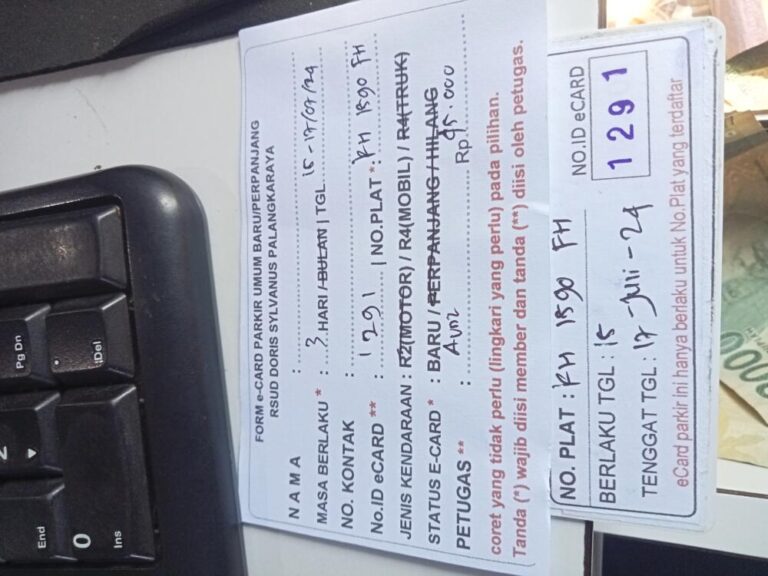 FORM e-CARD PARKIR UMUM BARU/PERPANJANG
RSUD DORIS SYLVANUS PALANGKARAYA
N A M A :
MASA BERLAKU * : 3 HARI / BULAN | TGL 15 - 17/07/24
NO. KONTAK :
No.ID eCARD ** : 1291 | NO.PLAT * : KH 1590 FH
JENIS KENDARAAN : R2(MOTOR) / R4(MOBIL) / R4(TRUK)
STATUS E-CARD * : BARU / PERPANJANG / HILANG
PETUGAS ** : Rp 95.000
coret yang tidak perlu (lingkari yang perlu) pada pilihan.
Tanda (*) wajib diisi member dan tanda (**) diisi oleh petugas.
NO. PLAT : KH 1590 FH
BERLAKU TGL : 15
TENGGAT TGL : 17 - Juli - 24
NO.ID eCARD
1291
eCard parkir ini hanya berlaku untuk No.Plat yang terdaftar
Pg Dn
Del
End
0
Ins